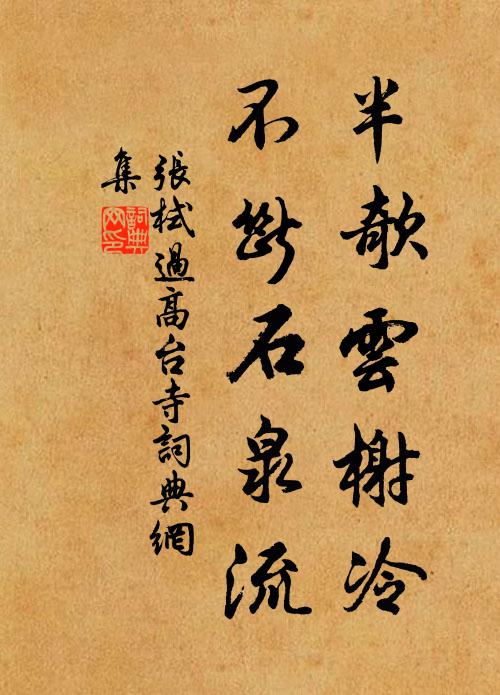 半欹雲榭冷
不斷石泉流
張栻過高台寺詞典網
集
詞典
网印